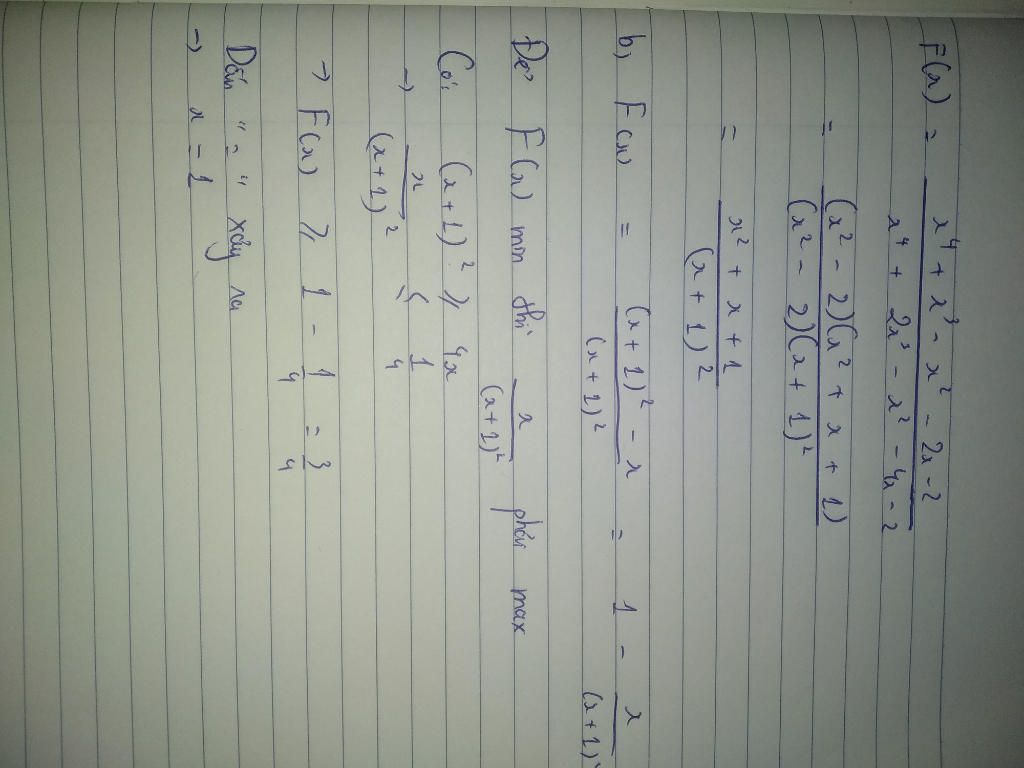 F(x) = x⁴ + x³ - x² - 2x - 2
x⁴ + 2x³ - x² - 4x - 2
= (x² - 2)(x² + x + 1)
(x² - 2)(x + 1)²
= x² + x + 1
(x + 1)²
b, F(x) = (x + 1)² - x = 1 - x
(x + 1)² (x + 1)²
Để F(x) min thì x phải max
(x + 1)²
Có: (x + 1)² ⩾ 4x
→ x ⩽ 1
(x + 1)² 4
→ F(x) ⩾ 1 - 1 = 3
4 4
Dấu " = " xảy ra
→ x = 1